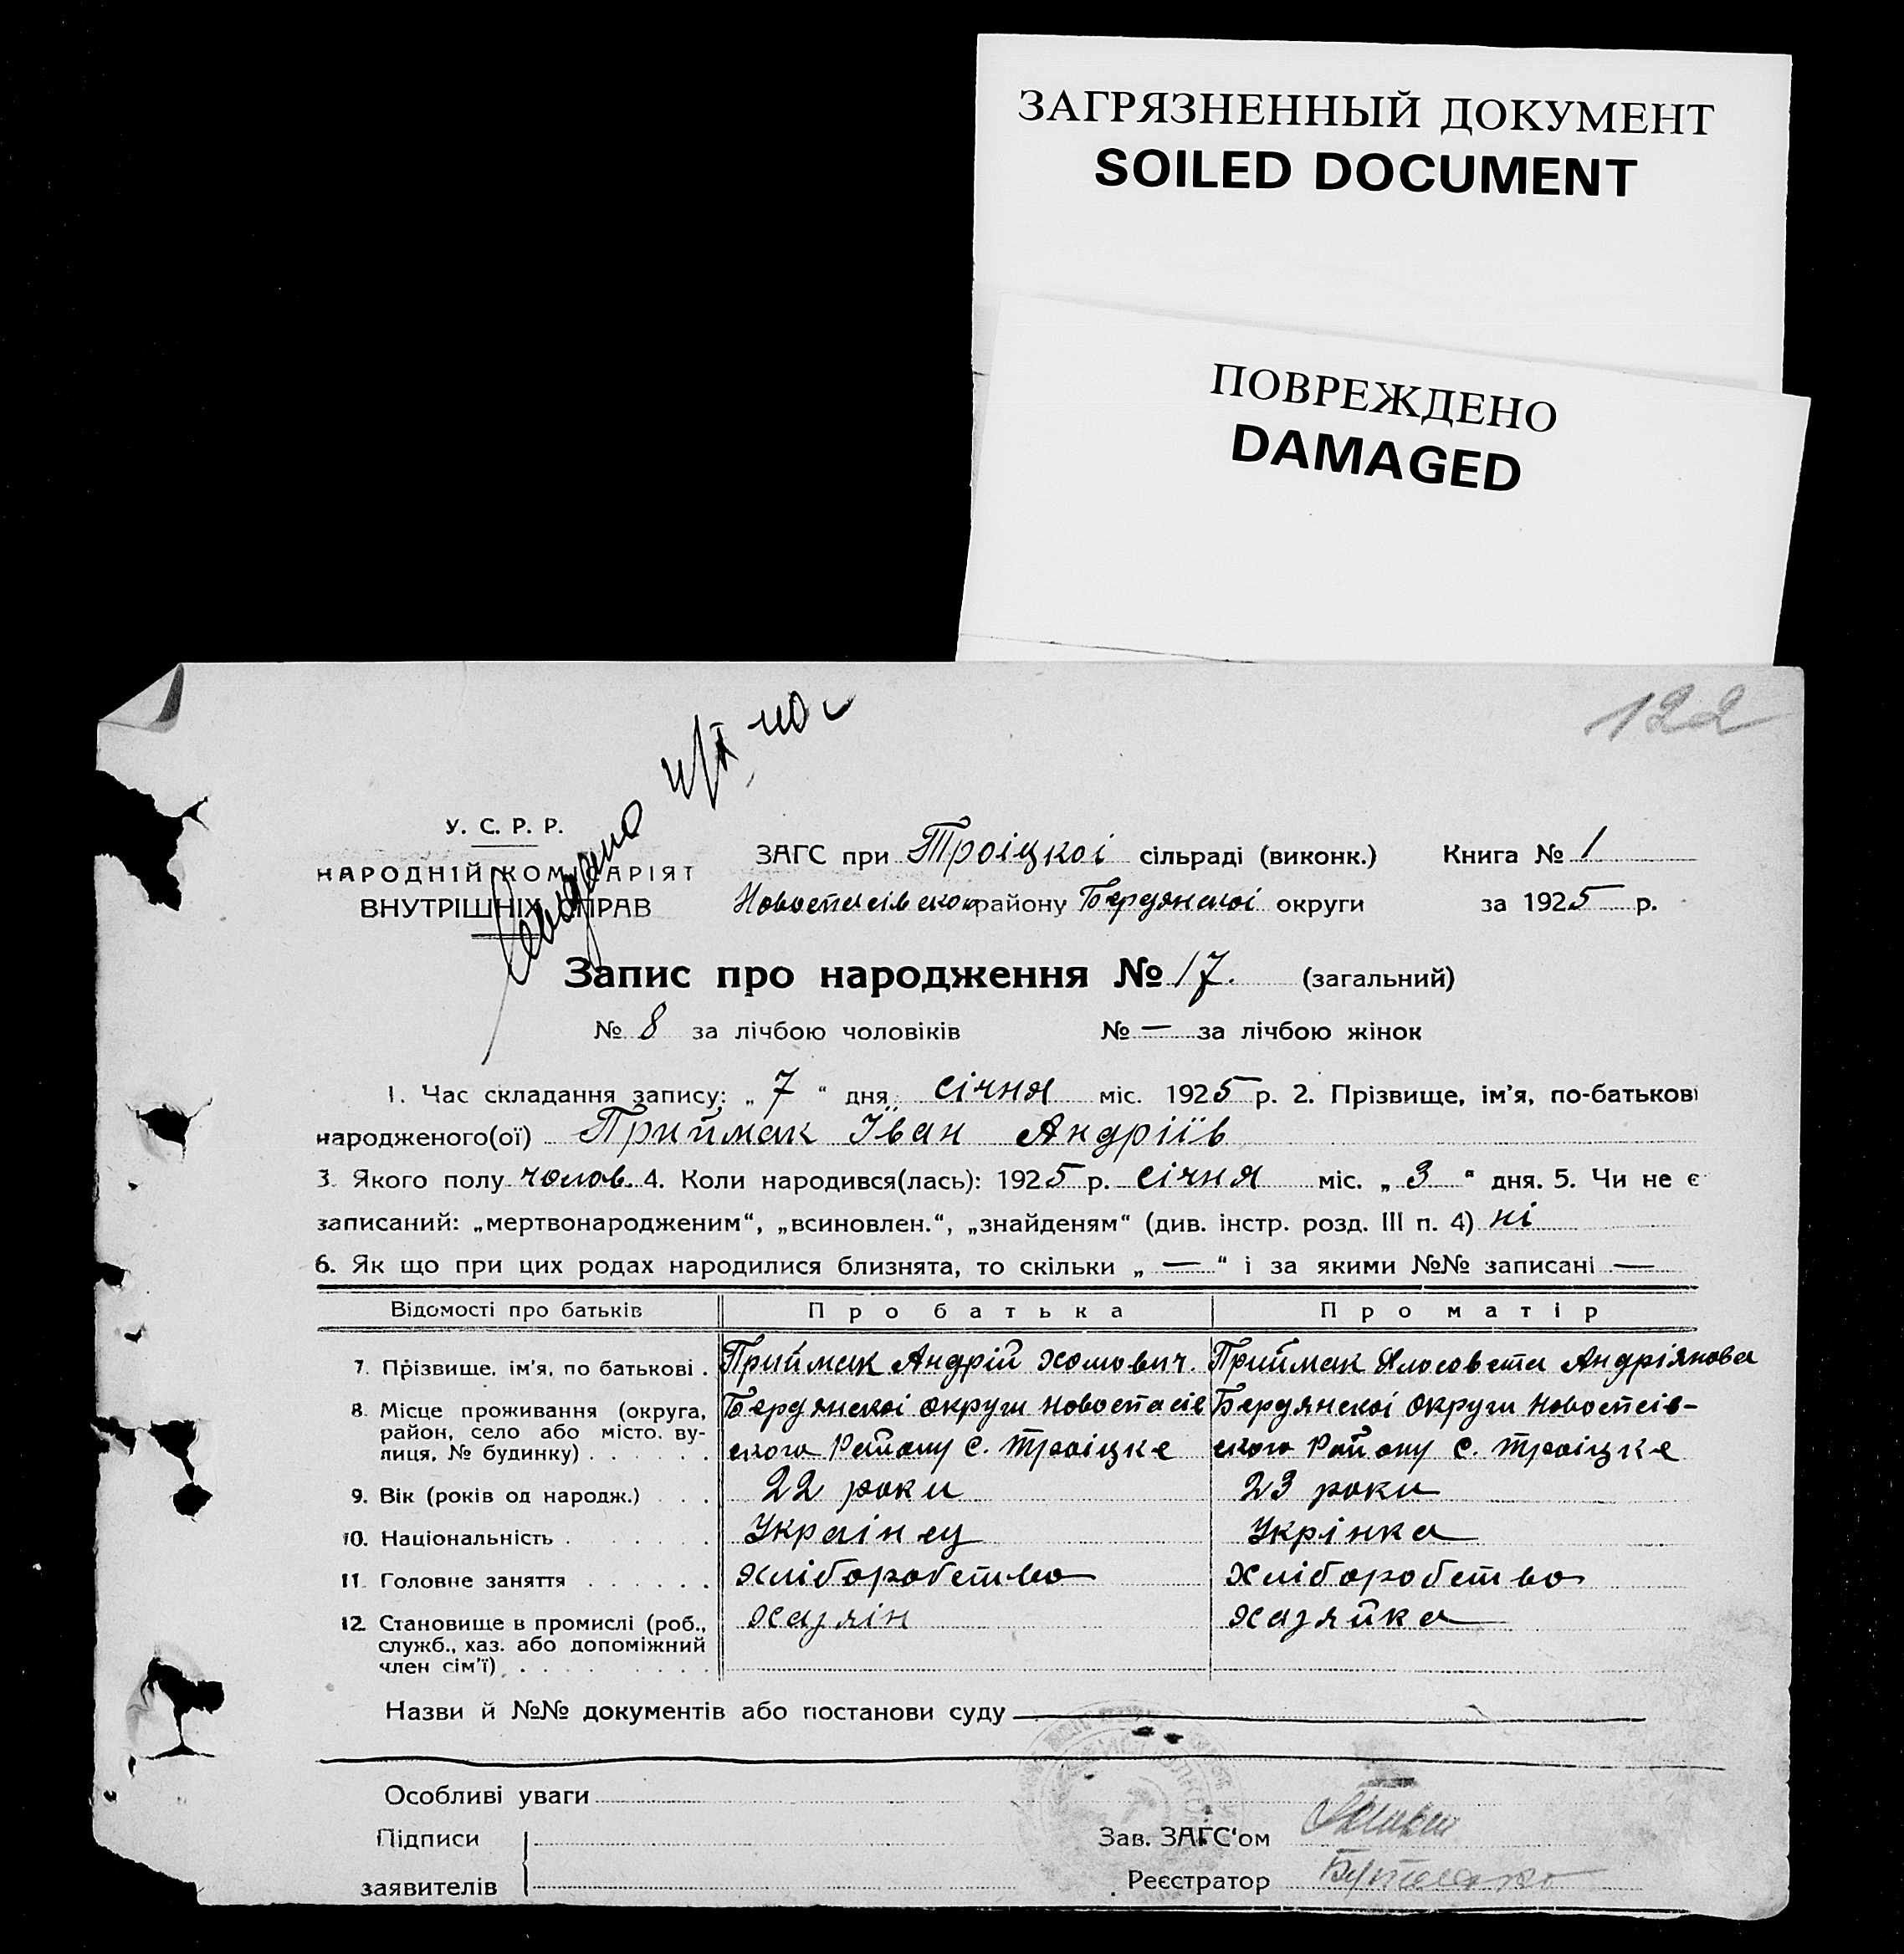 ЗАГРЯЗНЕННЫЙ ДОКУМЕНТ
SOILED DOCUMENT
ПОВРЕЖДЕНО
DAMAGED
122
У. С. Р. Р.
НАРОДНІЙ КОМІСАРІЯТ
ВНУТРІШНІХ СПРАВ
ЗАГС при Троіцкоі сільраді (виконк.) Книга № 1
району Бердянскоі округи за 1925 р.
Запис про народження № 17. (загальний)
№ 8 за лічбою чоловіків № — за лічбою жінок
1. Час складання запису: „ 7 “ дня січня міс. 1925 р. 2. Прізвище, ім'я, по-батькові
народженого(ої) Приймак Іван Андріїв
3. Якого полу чолов. 4. Коли народився(лась): 1925 р. січня міс. „ 3 “ дня. 5. Чи не є
записаний: „мертвонародженим“, „всиновлен.“, „знайденям“ (див. інстр. розд. III п. 4) ні
6. Як що при цих родах народилися близнята, то скільки „ — “ і за якими №№ записані —
Відомості про батьків Про батька Про матір
7. Прізвище, ім'я, по батькові . Приймак Андрій Хомович. Приймак Андріянова
8. Місце проживання (округа, Бердянскоі округи Бердянскоі Округи Новоспсів-
район, село або місто, ву- ского Району с. Троіцке ского Району с. Троіцке
лиця, № будинку) . . . . . .
9. Вік (років од народж.) . . . 22 роки 23 роки
10. Національність . . . . . . Украінец Укрінка
11. Головне заняття . . . . . . хліборобство хліборобство
12. Становище в промислі (роб., хазяін хазяйка
служб., хаз. або допоміжний
член сім'ї) . . . . . . . . .
Назви й №№ документів або постанови суду
Особливі уваги
Підписи Зав. ЗАГС'ом
заявителів Реєстратор